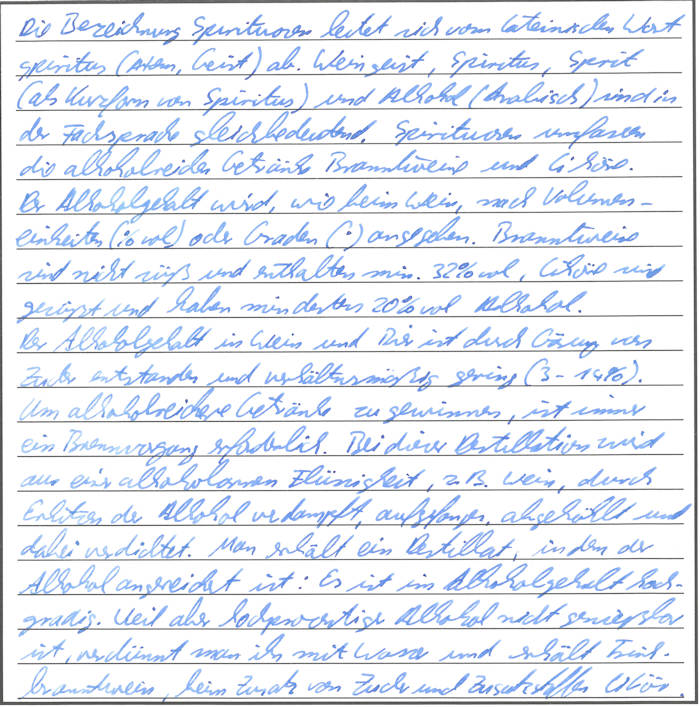 Die Bezeichnung Spirituosen leitet sich vom lateinischen Wort
spiritus (Atem, Geist) ab. Weingeist, Spiritus, Sprit
(als Kurzform von Spiritus) und Alkohol (Arabisch) sind in
der Fachsprache gleichbedeutend. Spirituosen umfassen
die alkoholreichen Getränke Branntweine und Liköre.
Der Alkoholgehalt wird, wie beim Wein, nach Volumen-
einheiten (% vol) oder Graden (°) angegeben. Branntweine
sind nicht süß und enthalten min. 32% vol, Liköre sind
gesüßt und haben mindestens 20% vol Alkohol.
Der Alkoholgehalt in Wein und Bier ist durch Gärung von
Zucker entstanden und verhältnismäßig gering (3 - 14%).
Um alkoholreichere Getränke zu gewinnen, ist immer
ein Brennvorgang erforderlich. Bei dieser Destillation wird
aus einer alkoholarmen Flüssigkeit, z.B. Wein, durch
Erhitzen der Alkohol verdampft, aufgefangen, abgekühlt und
dabei verdichtet. Man erhält ein Destillat, in dem der
Alkohol angereichert ist: Es ist im Alkoholgehalt hoch-
gradig. Weil aber hochprozentiger Alkohol nicht geniessbar
ist, verdünnt man ihn mit Wasser und erhält Trink-
branntwein, beim Zusatz von Zucker und Zusatzstoffen Likör.